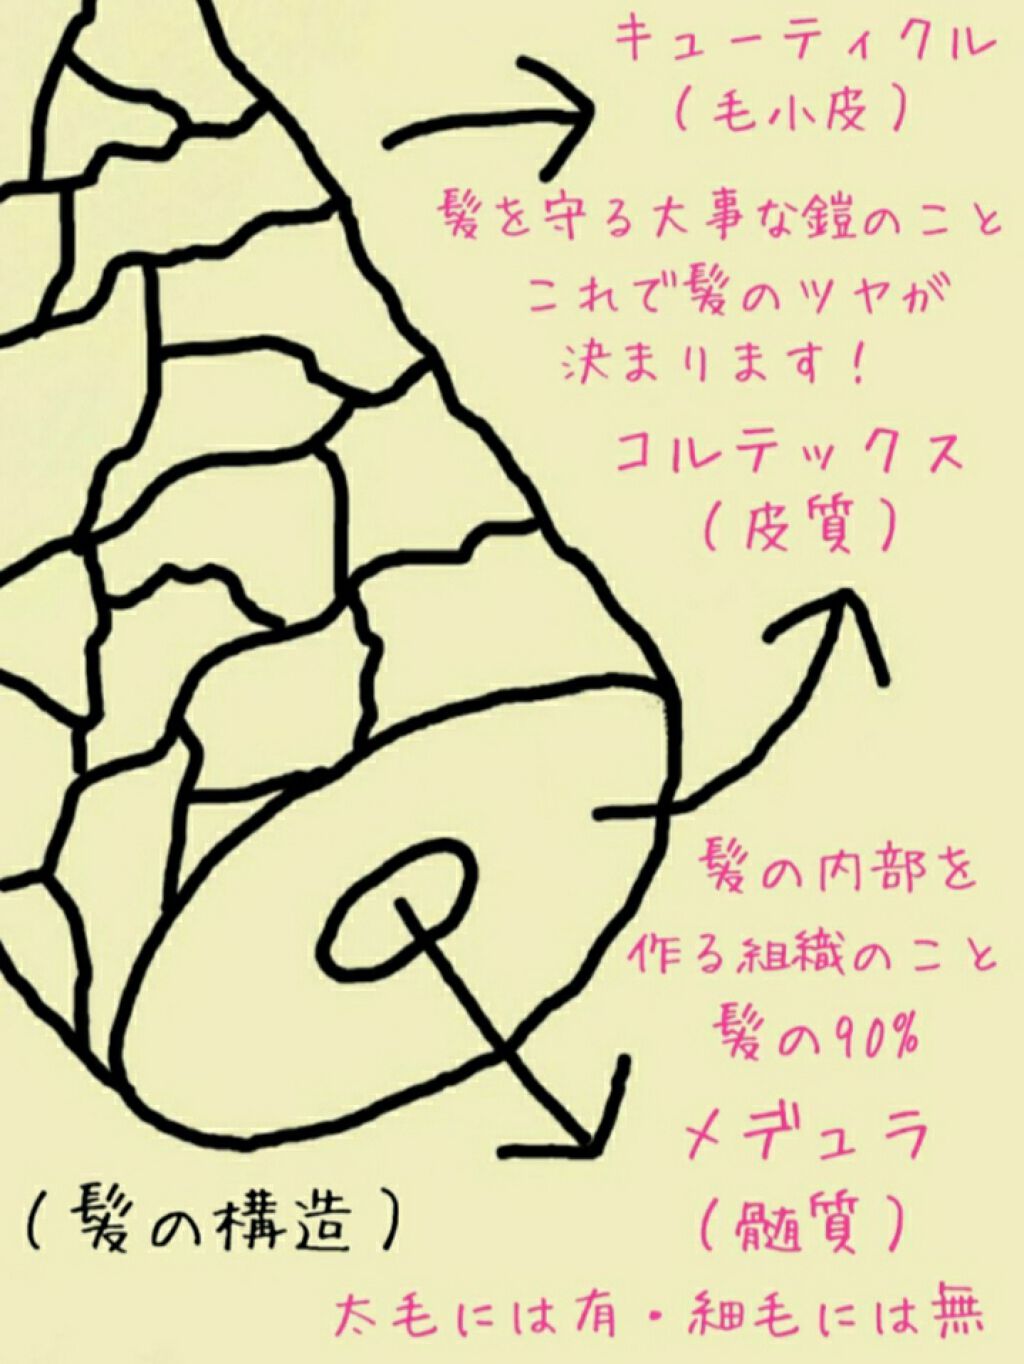 キューティクル
(毛小皮)
髪を守る大事な鎧のこと
これで髪のツヤが
決まります!
コルテックス
(皮質)
髪の内部を
作る組織のこと
髪の90%
メデュラ
(髄質)
(髪の構造)
太毛には有・細毛には無